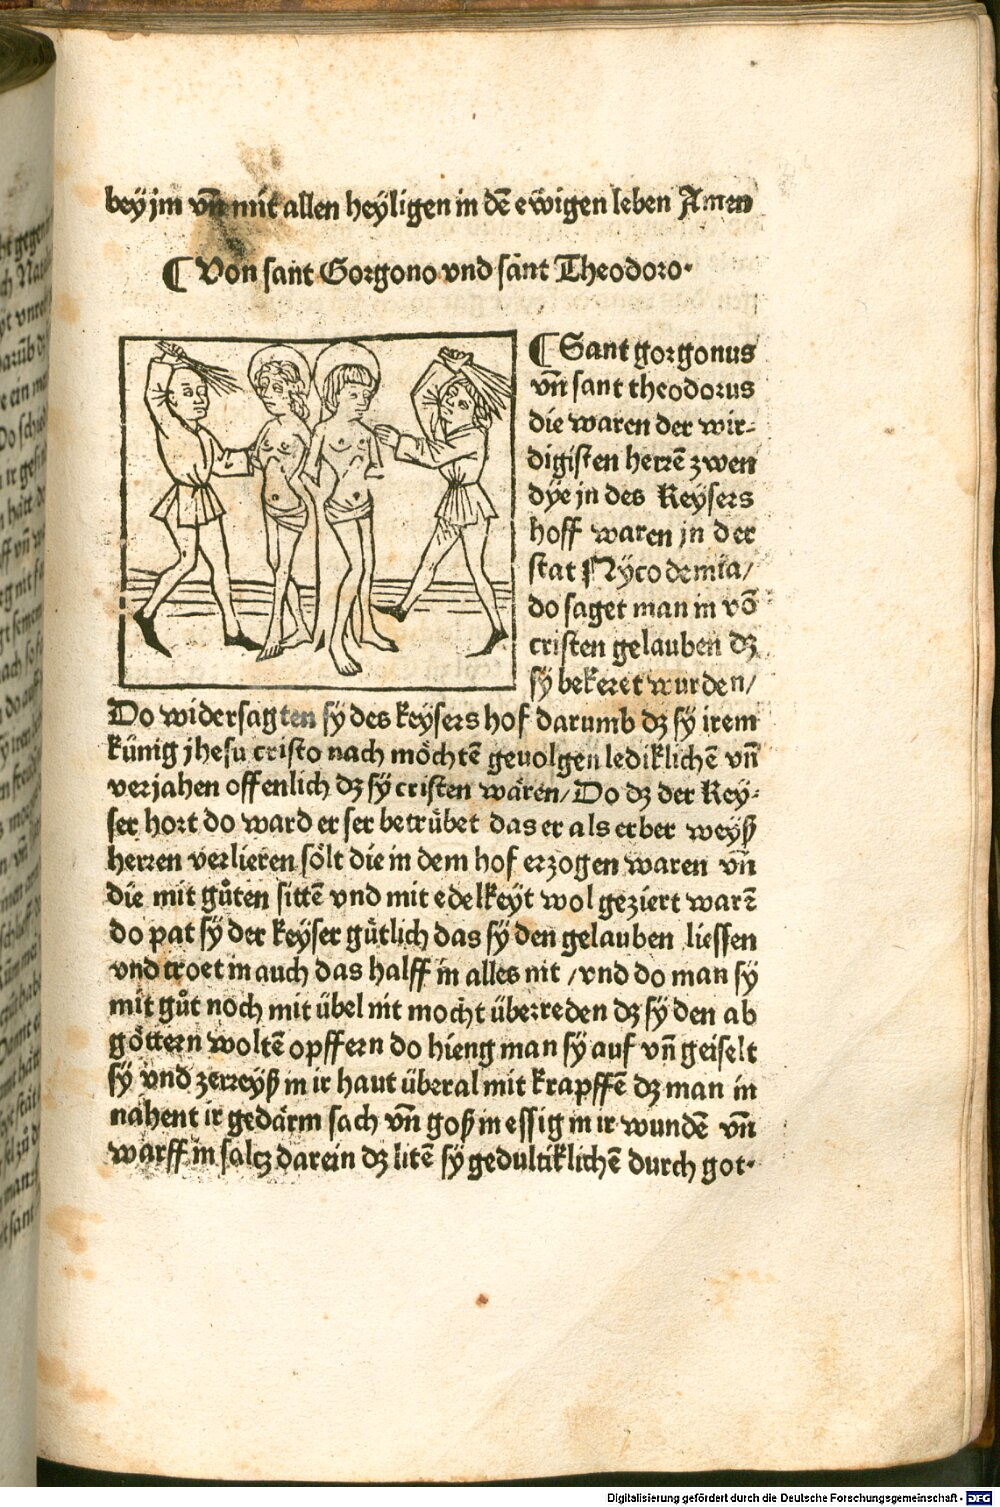 bey jm vn̄ mit allen heyligen in dē ewigen leben Amen
¶ Von sant Gorgono vnd sant Theodoro.
¶ Sant gorgonus
vn̄ sant theodorus
die waren der wir-
digisten herrē zwen
dye in des Keysers
hoff waren in der
stat Nycodemia/
do saget man in võ
cristen gelauben dꝫ
sy bekeret wurden/
Do widersagten sy des keysers hof darumb dꝫ sy irem
künig jhesu cristo nach möchtē geuolgen lediklichē vn̄
verjahen offenlich dꝫ sy cristen wären/ Do dꝫ der Key-
ser hort do ward er ser betrübet das er als erber weyß
herren verlieren sölt die in dem hof erzogen waren vn̄
die mit gůten sittē vnd mit edelkeyt wol geziert warē
do pat sy der keyser gütlich das sy den gelauben liessen
vnd troet in auch das halff in alles nit / vnd do man sy
mit gůt noch mit übel nit mocht überreden dꝫ sy den ab
göttern woltē opffern do hieng man sy auf vn̄ geiselt
sy vnd zerreyß in ir haut überal mit krapffē dꝫ man in
nahent ir gedärm sach vn̄ goß in essig in ir wundē vn̄
warff in salcz darein dꝫ litē sy gedultiklichē durch got.
Digitalisierung gefördert durch die Deutsche Forschungsgemeinschaft - DFG